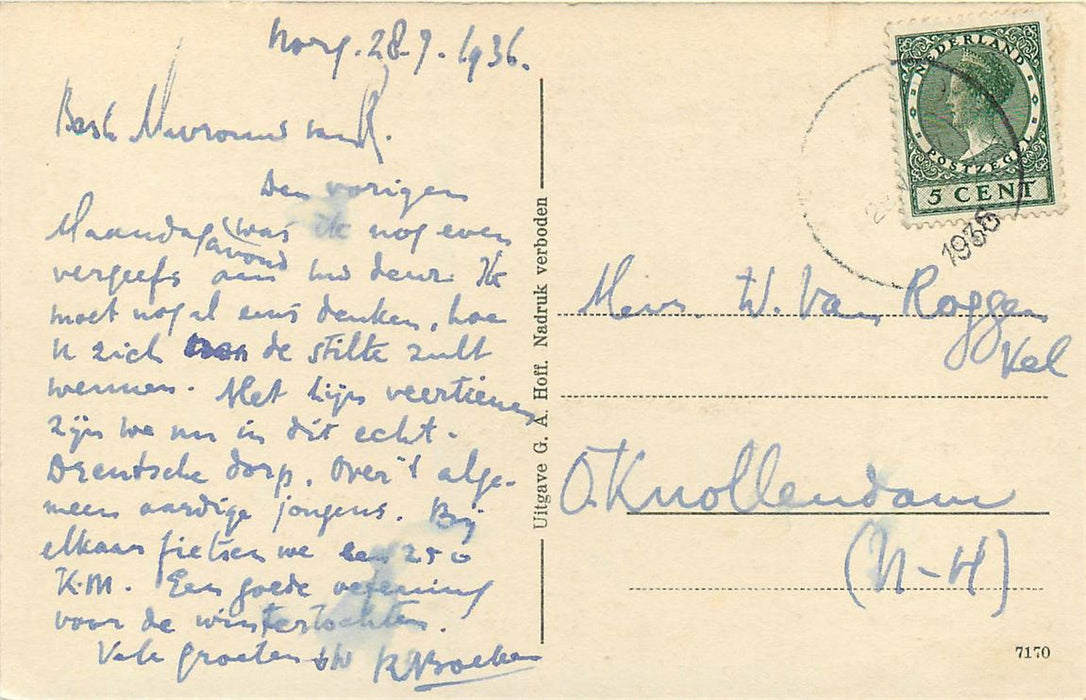 Norg. 28-7-1936.
Beste Mevrouw van R.
Den vorigen
Maandag was ik nog even
avond
vergeefs aan uw deur. Ik
moet nog al eens denken, hoe
U zich de stilte zult
wennen. Met zijn veertienen
zijn we nu in dit echt-
Drentsche dorp. Over 't alge-
meen aardige jongens. Bij
elkaar fietsen we een 250
K.M. Een goede oefening
voor de wintertochten.
Vele groeten
Uitgave G. A. Hoff. Nadruk verboden
NEDERLAND
POSTZEGEL
5 CENT
1936
Mevr. W. Van Roggen
Kel
O. Knollendam
(N-H)
7170